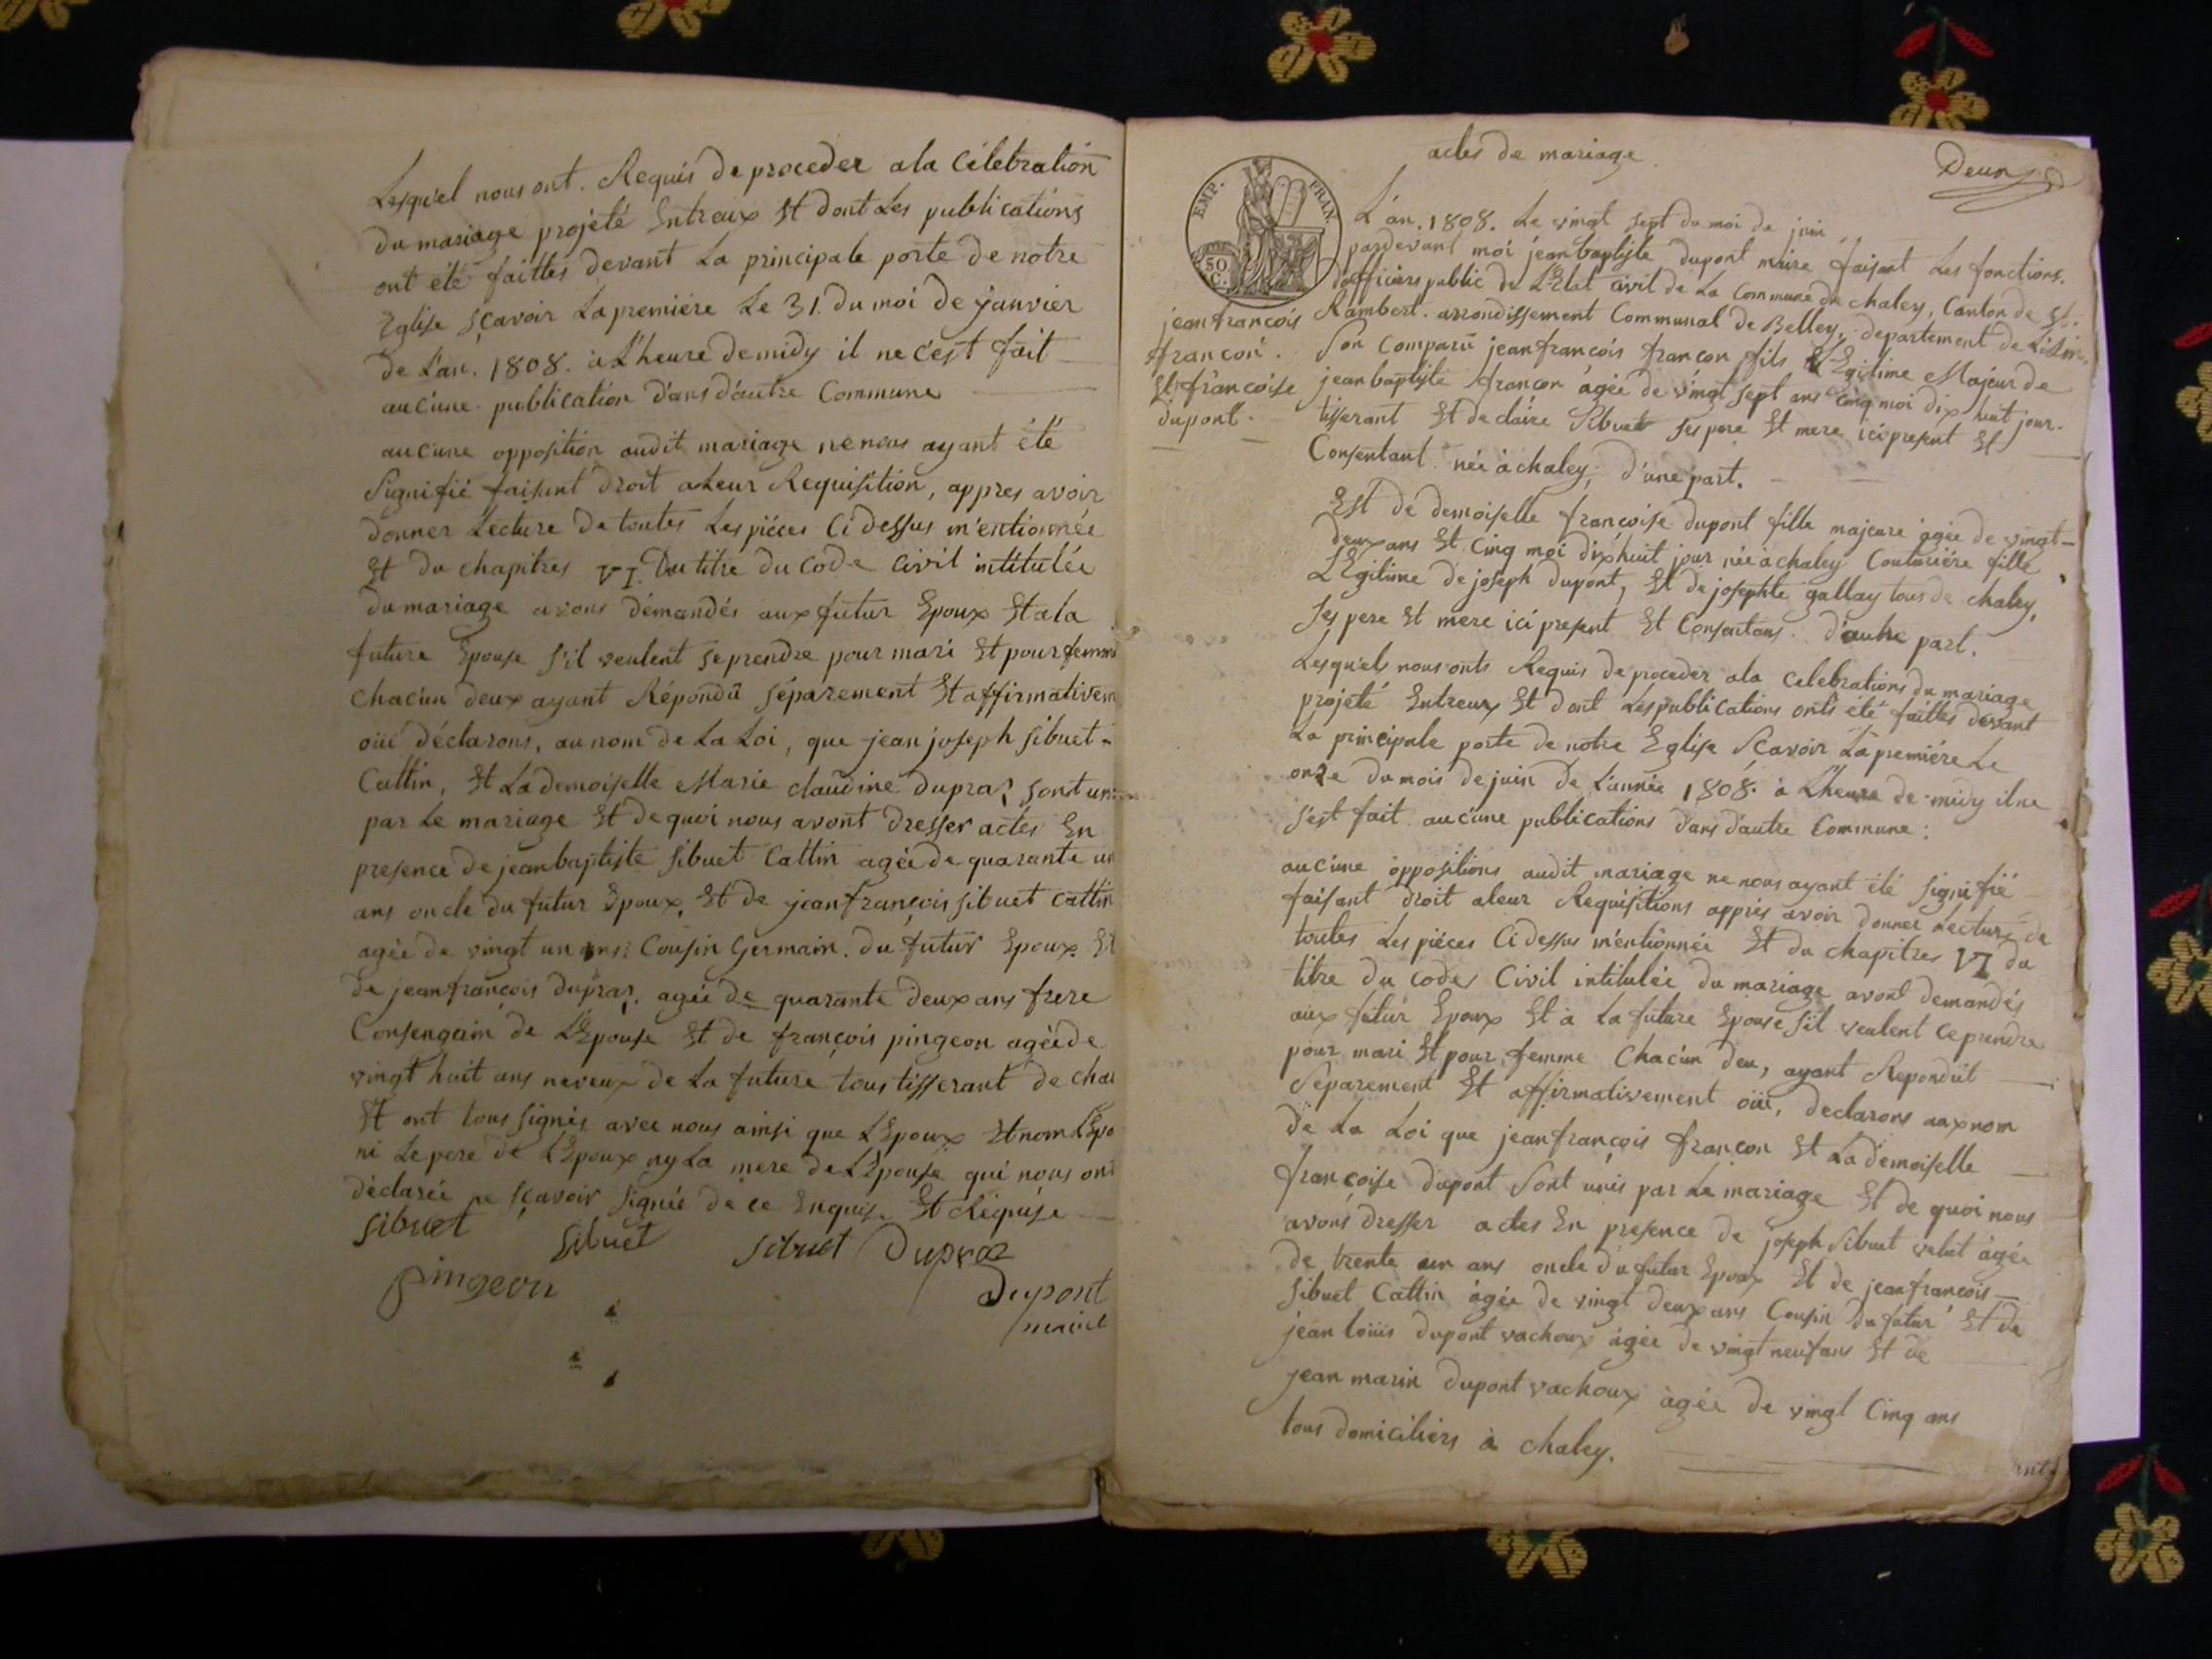 Lesquel nous ont. Requis de proceder a la Célebration
du mariage projété Entreux Et dont Les publications
ont été faittes devant La principale porte de notre
Eglise sçavoir La premiére Le 31. du moi de janvier
de L'an. 1808. à L'heure de midy il ne c'est fait
auc'une publication d'ans d'autre Commune
aucune opposition audit mariage ne nous ayant été
Signifié faisant droit a Leur Requisition, appres avoir
donner Lecture de toutes Les piéces Ci dessus m'entionnée
Et du chapitres VI. Du titre du Code Civil intitulée
du mariage avons démandés aux futur Epoux Et a la
future Epouse s'il veulent se prendre pour mari Et pour femme
chac'un deux ayant Répondû séparement Et affirmativem
oüi déclarons, au nom de La Loi, que jean joseph sibuet-
Cattin, Et La demoiselle Marie claudine dupraz sont uni
par Le mariage Et de quoi nous avont dresser actes En
presence de jean baptiste sibuet Cattin agée de quarante un
ans oncle du futur Epoux, Et de jean françois sibuet Cattin
agée de vingt un ans: Cousin Germain. du futur Epoux. Et
de jean françois dupraz. agée de quarante deux ans frere
Consengain de L'Epouse Et de françois pingeon agée de
vingt huit ans neveux de La future tous tisserant de chal
Et ont tous signés avec nous ainsi que L'Epoux Et nom L'Epo
ni Le pere de L'Epoux ny La mere de L'Epouse qui nous ont
déclarée ne sçavoir signée de ce Enquis. Et Requise
Sibuet Sibuet Sibuet Dupraz
Pingeon
Dupont
maire
actes de mariage.
Deux
EMP. FRAN.
50 C.
L'an. 1808. Le vingt sept du moi de juin
pardevant moi jean baptiste dupont maire faisant Les fonctions.
d'officiers public de L'Etat civil de La Commune de chaley, Canton de St.
Rambert. arrondissement Communal de Belley, departement de L'ain.
jean francois
françon.
Et françoise
dupont.
Son Comparû jean francois françon fils LEgitime Majeur de
jean baptiste françon agée de vingt sept ans Cinq moi dix huit jour.
tisserant Et de claire Sibuet ses pere Et mere ici present Et
Consentant née à chaley; d'une part.
Est de demoiselle françoise dupont fille majeure agée de vingt-
deux ans Et Cinq moi dix huit jour née à chaley Couturiére fille
LEgitime de joseph dupont, Et de josephte gallay tous de chaley,
ses pere Et mere ici present Et Consentans. d'autre part.
Lesqu'els nous onts Requis de proceder a la Celebrations du mariage
projeté Entreux Et dont Les publications onts été faittes devant
La principale porte de notre Eglise Scavoir La premiére Le
onze du mois de juin de L'année 1808. à L'heure de midy il ne
s'est fait auc'une publications d'ans d'autre Commune:
auc'une oppositions audit mariage ne nous ayant été signifié
faisant droit a leur Requisitions apprés avoir donner Lecture de
toutes Les piéces Ci dessus m'entionnée Et du chapitres VI du
titre du codes Civil intitulée du mariage avont demandés
aux futur Epoux Et à La future Epouse s'il veulent ce prendre
pour mari Et pour femme Chac'un deu, ayant Repondût
Séparement Et affirmativement oüi, declarons aux nom
de La Loi que jean françois françon Et La demoiselle
françoise dupont Sont unis par Le mariage Et de quoi nous
avons dresser actes En presence de joseph Sibuet velut agée
de trente un ans oncle du futur Epoux Et de jean françois
Sibuet Cattin agée de vingt deux ans Cousin du futur Et de
jean loüis dupont vachoux agée de vingt neuf ans Et de
jean marin dupont vachoux agée de vingt Cinq ans
tous domiciliers à chaley.